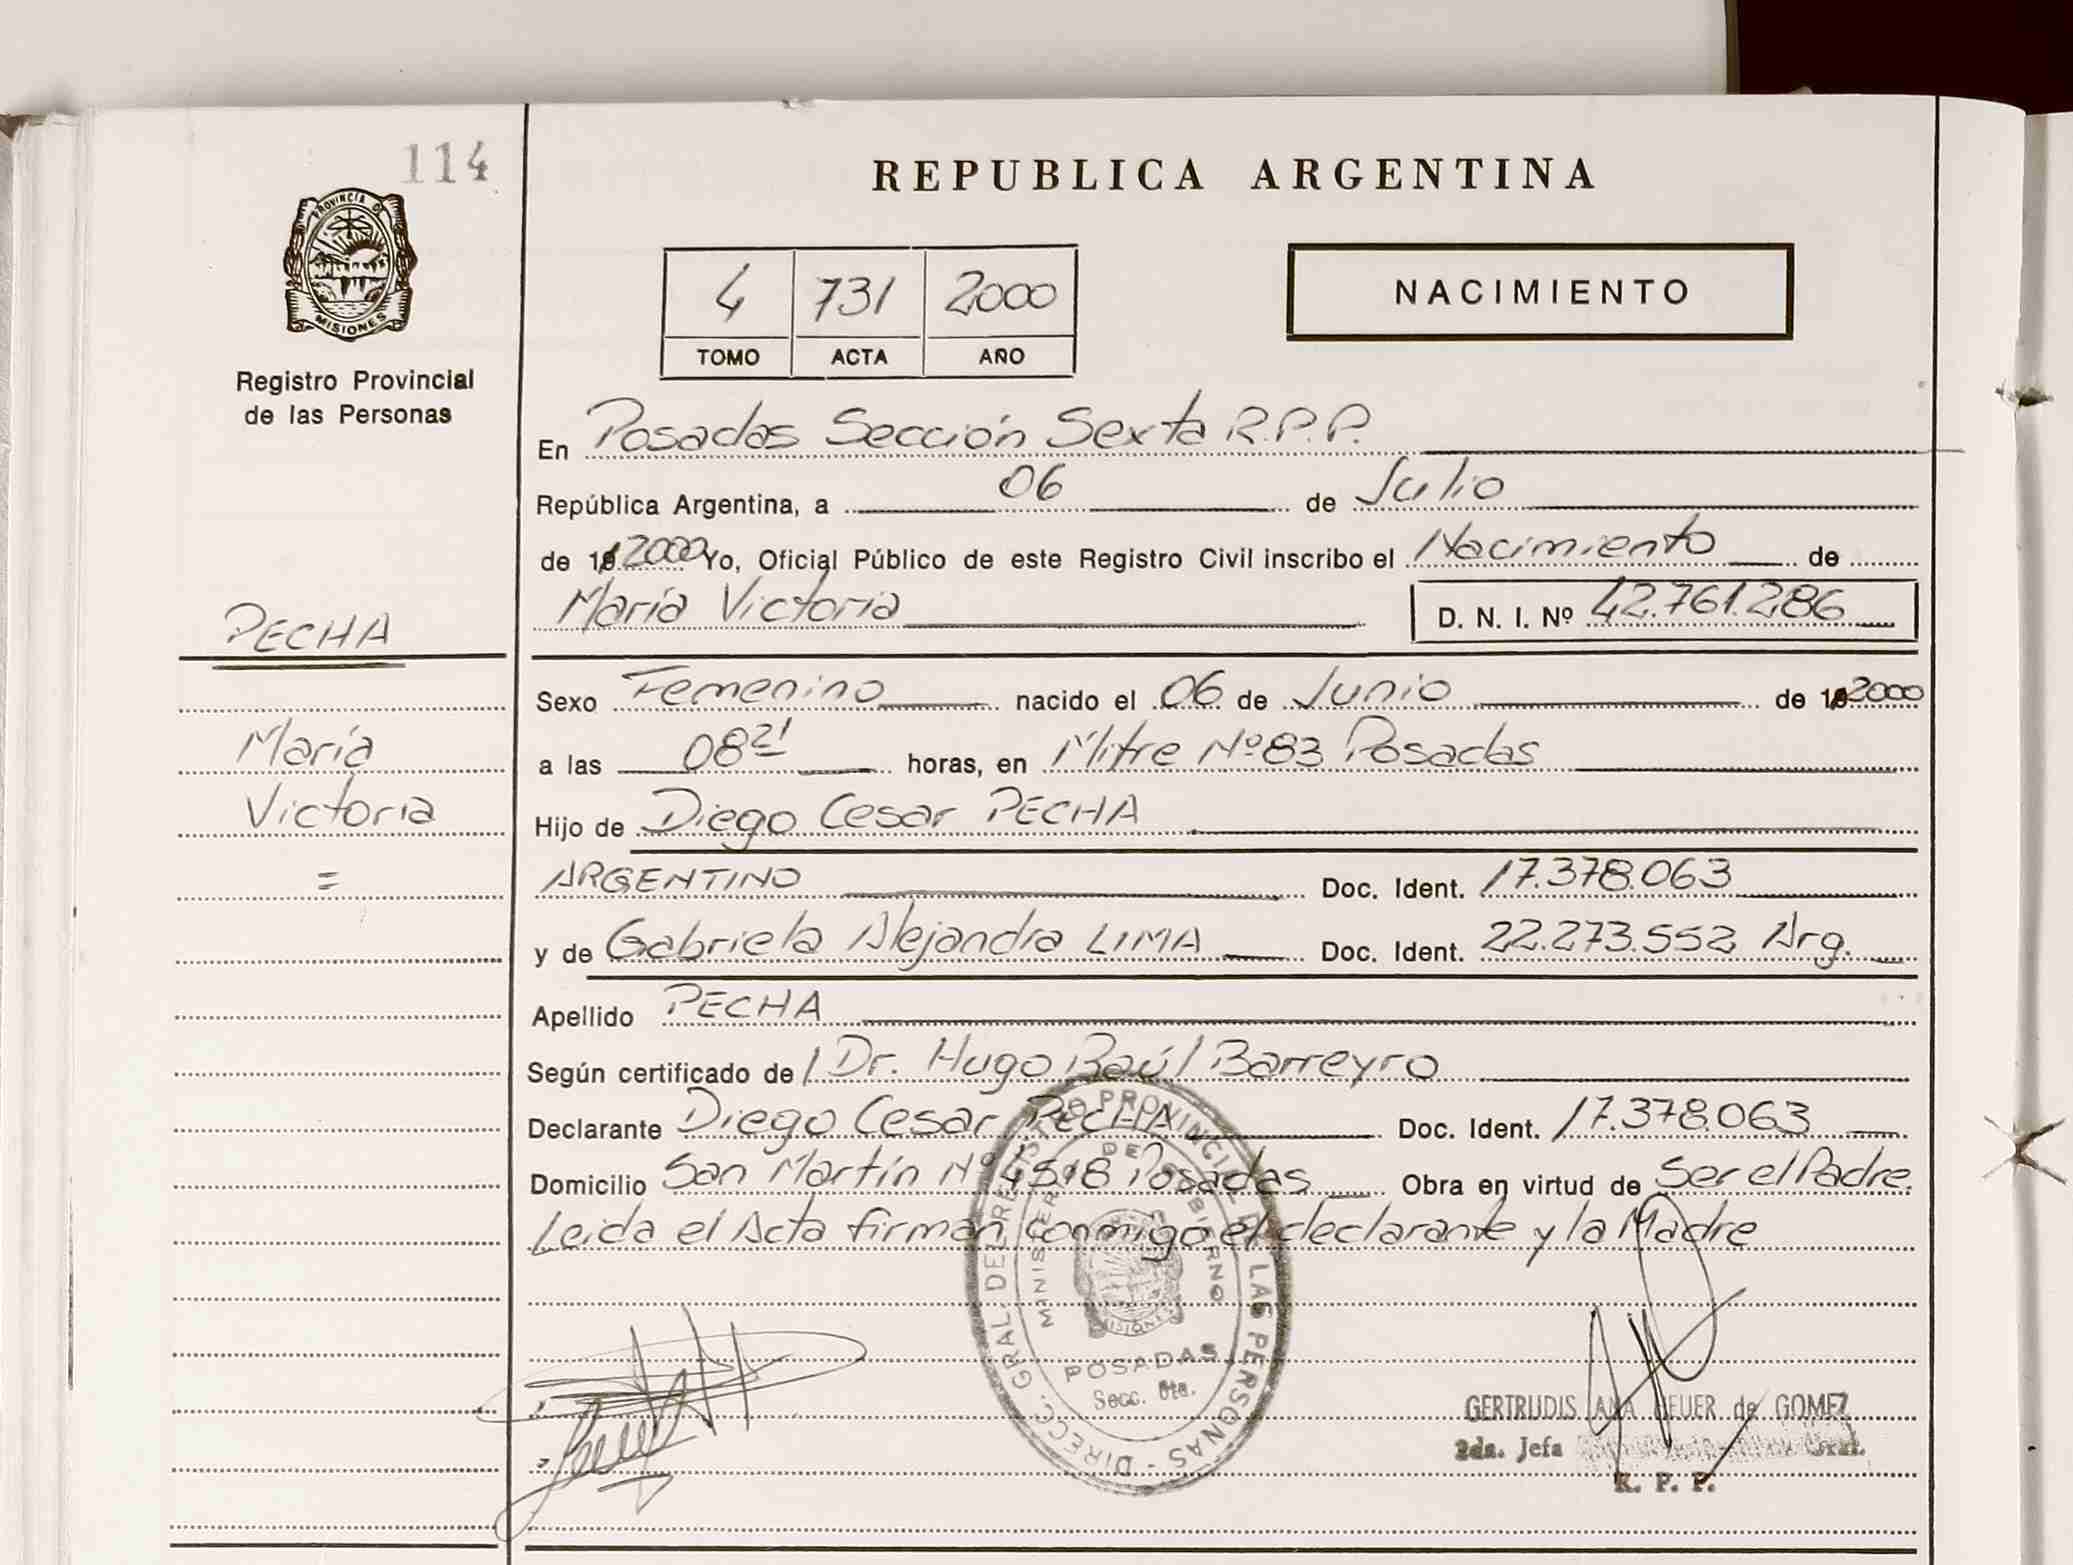 114
PROVINCIA DE
MISIONES
Registro Provincial
de las Personas
PECHA
María
Victoria
=
REPUBLICA ARGENTINA
4 731 2000
TOMO ACTA AÑO
NACIMIENTO
En Posadas Sección Sexta R.P.P.
República Argentina, a 06 de Julio
de 19 2000 Yo, Oficial Público de este Registro Civil inscribo el Nacimiento de
María Victoria D. N. I. Nº 42.761.286
Sexo Femenino nacido el 06 de Junio de 19 2000
a las 08 21 horas, en Mitre Nº 83 Posadas
Hijo de Diego Cesar PECHA
ARGENTINO Doc. Ident. 17.378.063
y de Gabriela Alejandra LIMA Doc. Ident. 22.273.552 Arg.
Apellido PECHA
Según certificado de Dr. Hugo Raúl Barreyro
Declarante Diego Cesar PECHA Doc. Ident. 17.378.063
Domicilio San Martín Nº 4518 Posadas Obra en virtud de Ser el Padre.
Leida el Acta firman conmigo el declarante y la Madre
DIRECC. GRAL. DEL REGISTRO PROVINCIAL DE LAS PERSONAS -
MINISTERIO DE GOBIERNO
MISIONES
POSADAS
Secc. 6ta.
GERTRUDIS ANA HEUER de GOMEZ
2da. Jefa
R. P. P.